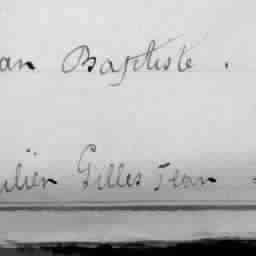 an Baptiste .
ulien Gilles Jean -